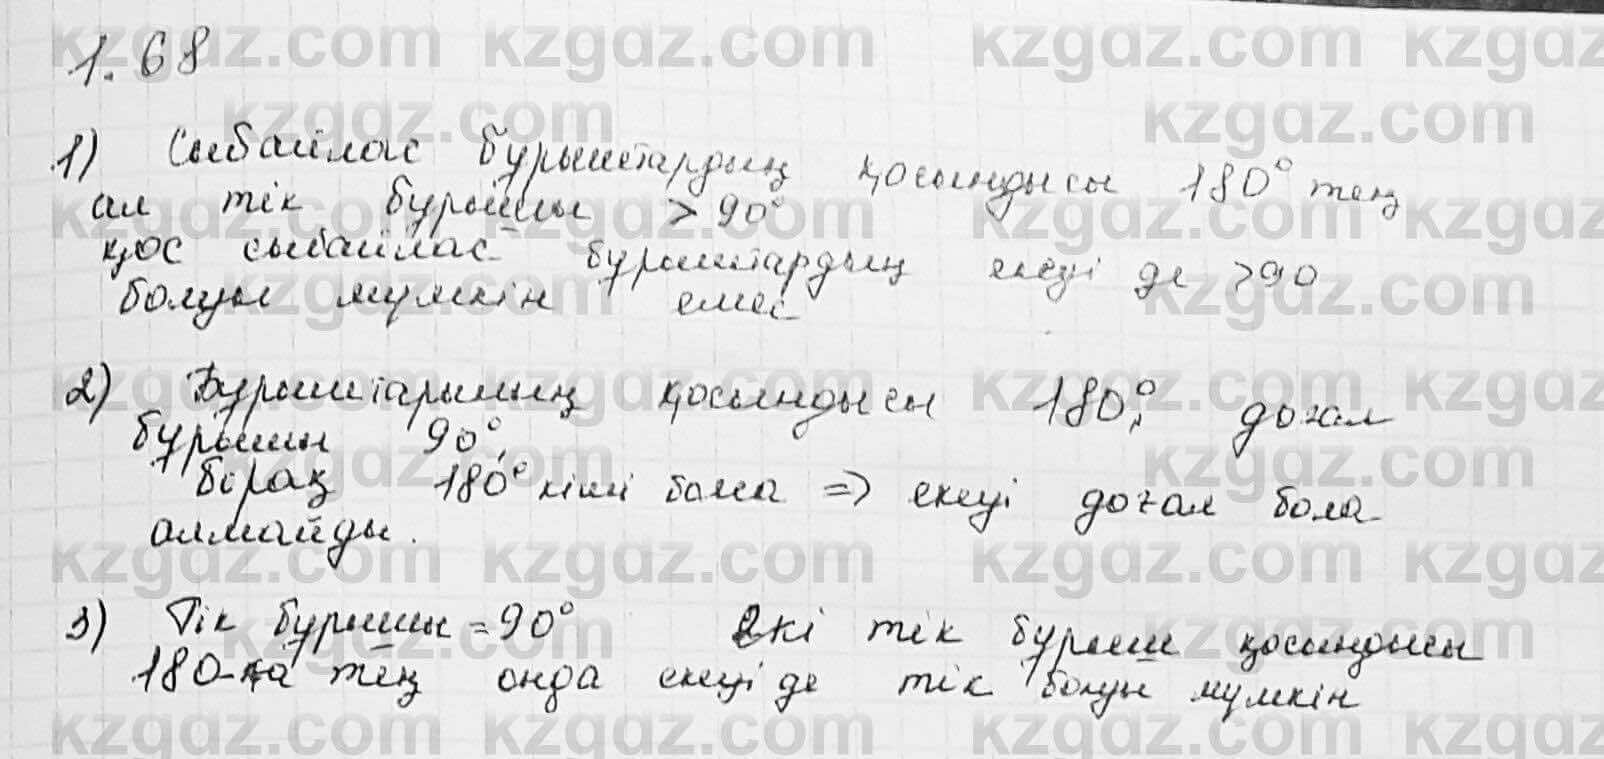 1.68
1) Сыбайлас бұрыштардың қосындысы 180° тең
ал тік бұрышы > 90°
қос сыбайлас бұрыштардың екеуі де >90
болуы мүмкін емес
2) Бұрыштарының қосындысы 180°, доғал
бұрышы 90°,
бірақ 180° кіші болса => екеуі доғал бола
алмайды.
3) Тік бұрышы = 90° Екі тік бұрыш қосындысы
180-қа тең онда екеуі де тік болуы мүмкін